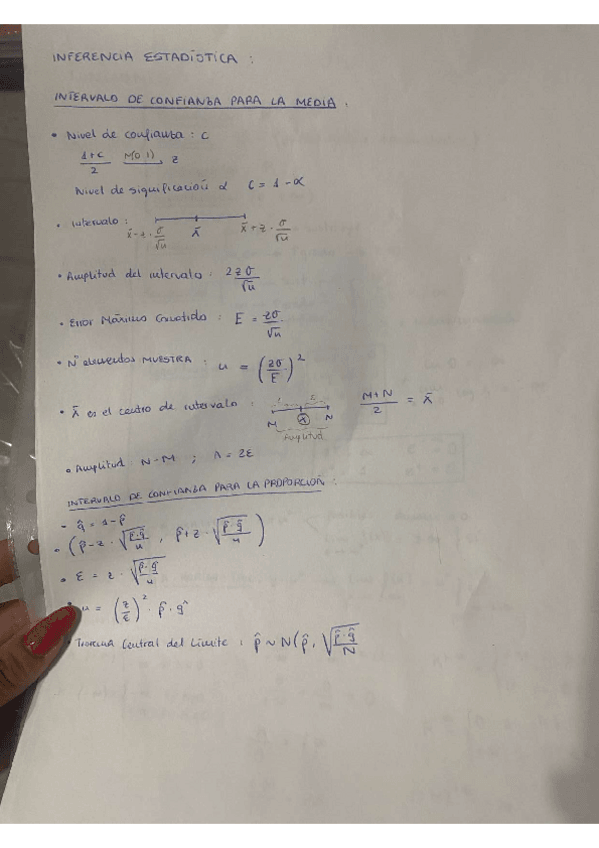 INFERENCIA ESTADÍSTICA :
INTERVALO DE CONFIANZA PARA LA MEDIA .
• Nivel de confianza : C
(1+C)/2 N(0,1) z
Nivel de significación α C = 1 - α
• Intervalo : x̄ - z · σ/√n x̄ x̄ + z · σ/√n
• Amplitud del intervalo : 2zσ/√n
• Error Máximo Cometido : E = zσ/√n
• Nº elementos MUESTRA : n = (zσ/E)²
• x̄ es el centro de intervalo : M x̄ N (M+N)/2 = x̄
Amplitud
• Amplitud : N-M ; A = 2E
INTERVALO DE CONFIANZA PARA LA PROPORCIÓN :
- q̂ = 1 - p̂
• (p̂ - z · √(p̂·q̂/n) , p̂ + z · √(p̂·q̂/n))
• E = z · √(p̂·q̂/n)
n = (z/E)² · p̂ · q̂
• Teorema Central del Límite : p̂ ~ N(p̂, √(p̂·q̂/N)